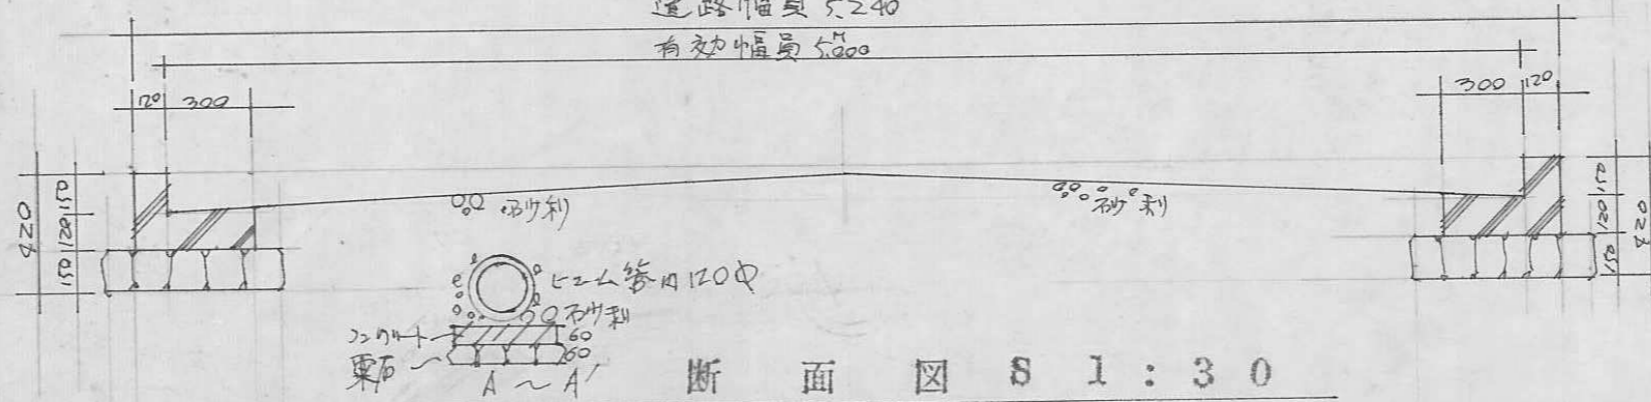 道路幅員 5.240
有効幅員 5.000M
120 300
300 120
150
120
150
420
150
120
150
420
砂利
砂利
ヒューム管内120φ
砂利
コンクリート
60
栗石
60
A～A'
断面図 S 1:30